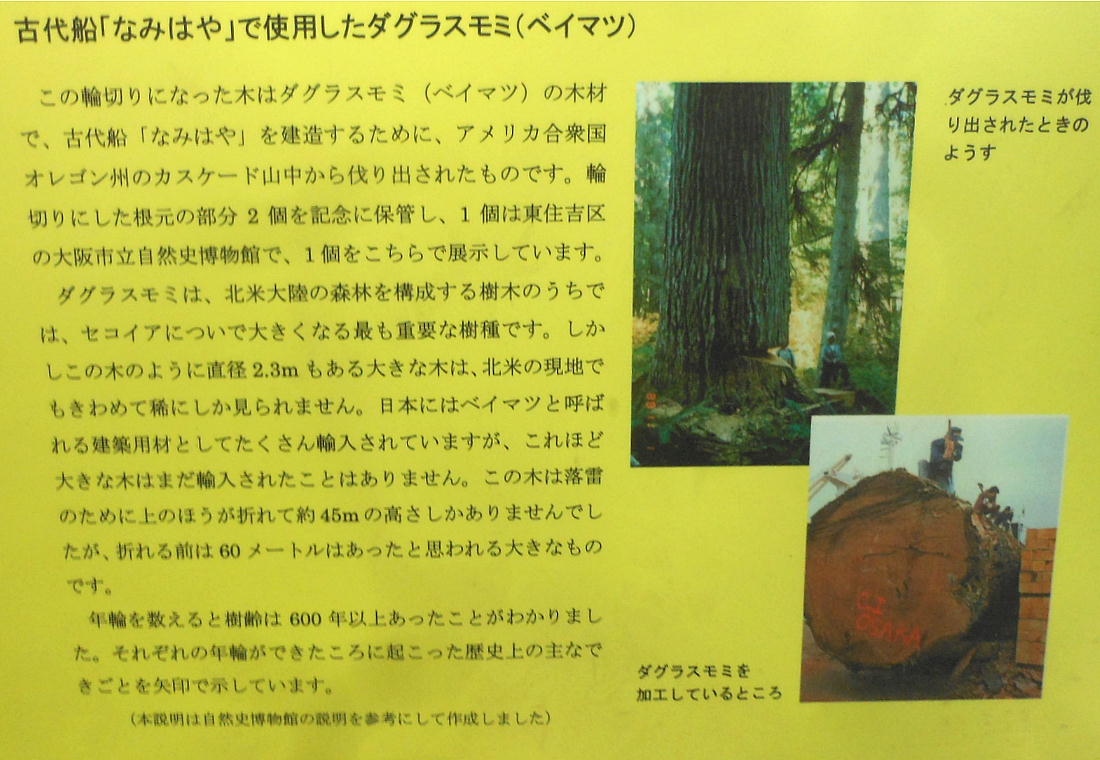 古代船「なみはや」で使用したダグラスモミ(ベイマツ)
この輪切りになった木はダグラスモミ（ベイマツ）の木材
で、古代船「なみはや」を建造するために、アメリカ合衆国
オレゴン州のカスケード山中から伐り出されたものです。輪
切りにした根元の部分 2 個を記念に保管し、1 個は東住吉区
の大阪市立自然史博物館で、1 個をこちらで展示しています。
ダグラスモミは、北米大陸の森林を構成する樹木のうちで
は、セコイアについで大きくなる最も重要な樹種です。しか
しこの木のように直径 2.3m もある大きな木は、北米の現地で
もきわめて稀にしか見られません。日本にはベイマツと呼ば
れる建築用材としてたくさん輸入されていますが、これほど
大きな木はまだ輸入されたことはありません。この木は落雷
のために上のほうが折れて約 45m の高さしかありませんでし
たが、折れる前は 60 メートルはあったと思われる大きなもの
です。
年輪を数えると樹齢は 600 年以上あったことがわかりまし
た。それぞれの年輪ができたころに起こった歴史上の主なで
きごとを矢印で示しています。
（本説明は自然史博物館の説明を参考にして作成しました）
ダグラスモミが伐
り出されたときの
ようす
OSAKA
ダグラスモミを
加工しているところ